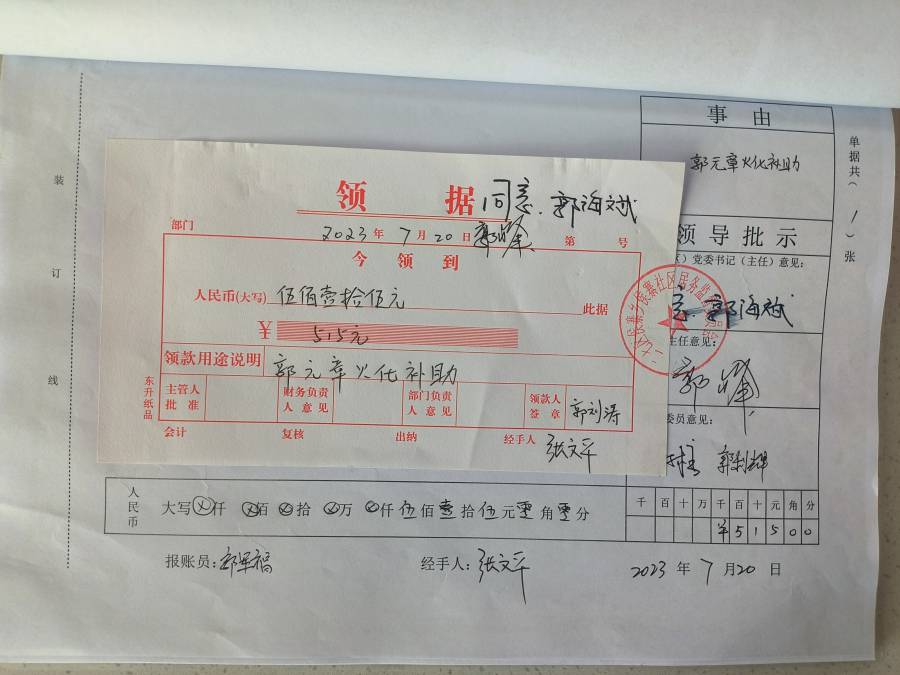 事由
郭元章火化补助
单据共(1)张
装订线
领据
同意.郭海斌
部门
2023年7月20日
第 号
今领到
人民币(大写)伍佰壹拾伍元 此据
¥ 515元
领款用途说明 郭元章火化补助
主管人批准
财务负责人意见
部门负责人意见
领款人签章 郭刘涛
会计 复核 出纳 经手人 张文平
东升纸品
领导批示
党委书记(主任)意见:
意.郭海斌
主任意见:
郭
委员意见:
人民币 大写 仟 佰 拾 万 仟伍佰壹拾伍元零角零分
千百十万千百十元角分
¥51500
报账员: 经手人:张文平 2023年7月20日